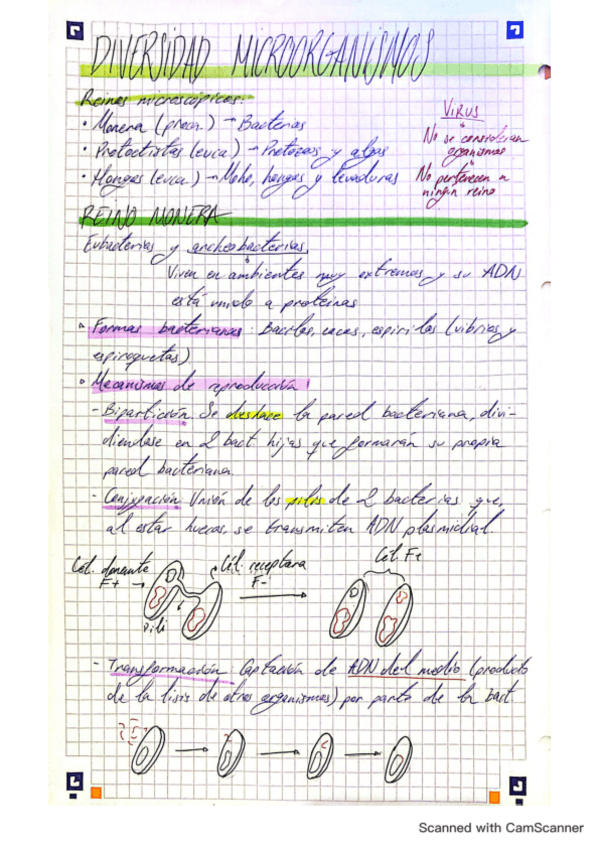 DIVERSIDAD MICROORGANISMOS
Reinos microscópicos:
• Monera (proca.) → Bacterias
• Protoctistas (euca) → Protozoos y algas
• Hongos (euca) → Moho, hongos y levaduras
VIRUS
No se consideran
organismos
No pertenecen a
ningún reino
REINO MONERA
Eubacterias y archeobacterias
Viven en ambientes muy extremos y su ADN
está unido a proteínas
• Formas bacterianas: Bacilos, cocos, espirilos (vibrios y
espiroquetas)
• Mecanismos de reproducción:
- Bipartición. Se deshace la pared bacteriana, divi-
diendose en 2 bact. hijas que formarán su propia
pared bacteriana
- Conjugación. Unión de los pilis de 2 bacterias que,
al estar huecos, se transmiten ADN plasmidial.
Cél. donante
F+
Cél. receptora
F-
Pili
Cél. F+
- Transformación: Captación de ADN del medio (producto
de la lisis de otros organismos) por parte de la bact.
Scanned with CamScanner